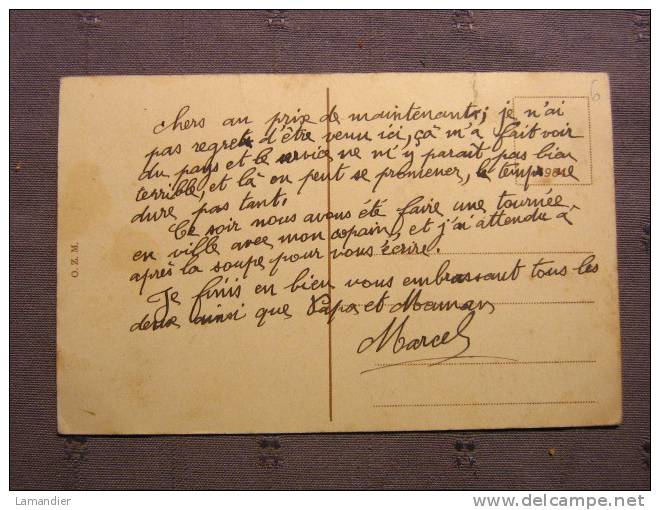 chers au prix de maintenant; je n'ai
pas regret d'être venu ici, çà m'a fait voir
du pays et le service ne m'y parait pas bien
terrible, et là on peut se promener, le temps ne
dure pas tant.
Ce soir nous avons été faire une tournée
en ville avec mon copain, et j'ai attendu à
après la soupe pour vous écrire.
Je finis en bien vous embrassant tous les
deux ainsi que Papa et Maman
Marcel
O. Z. M.
6
Lamandier
delcampe.net